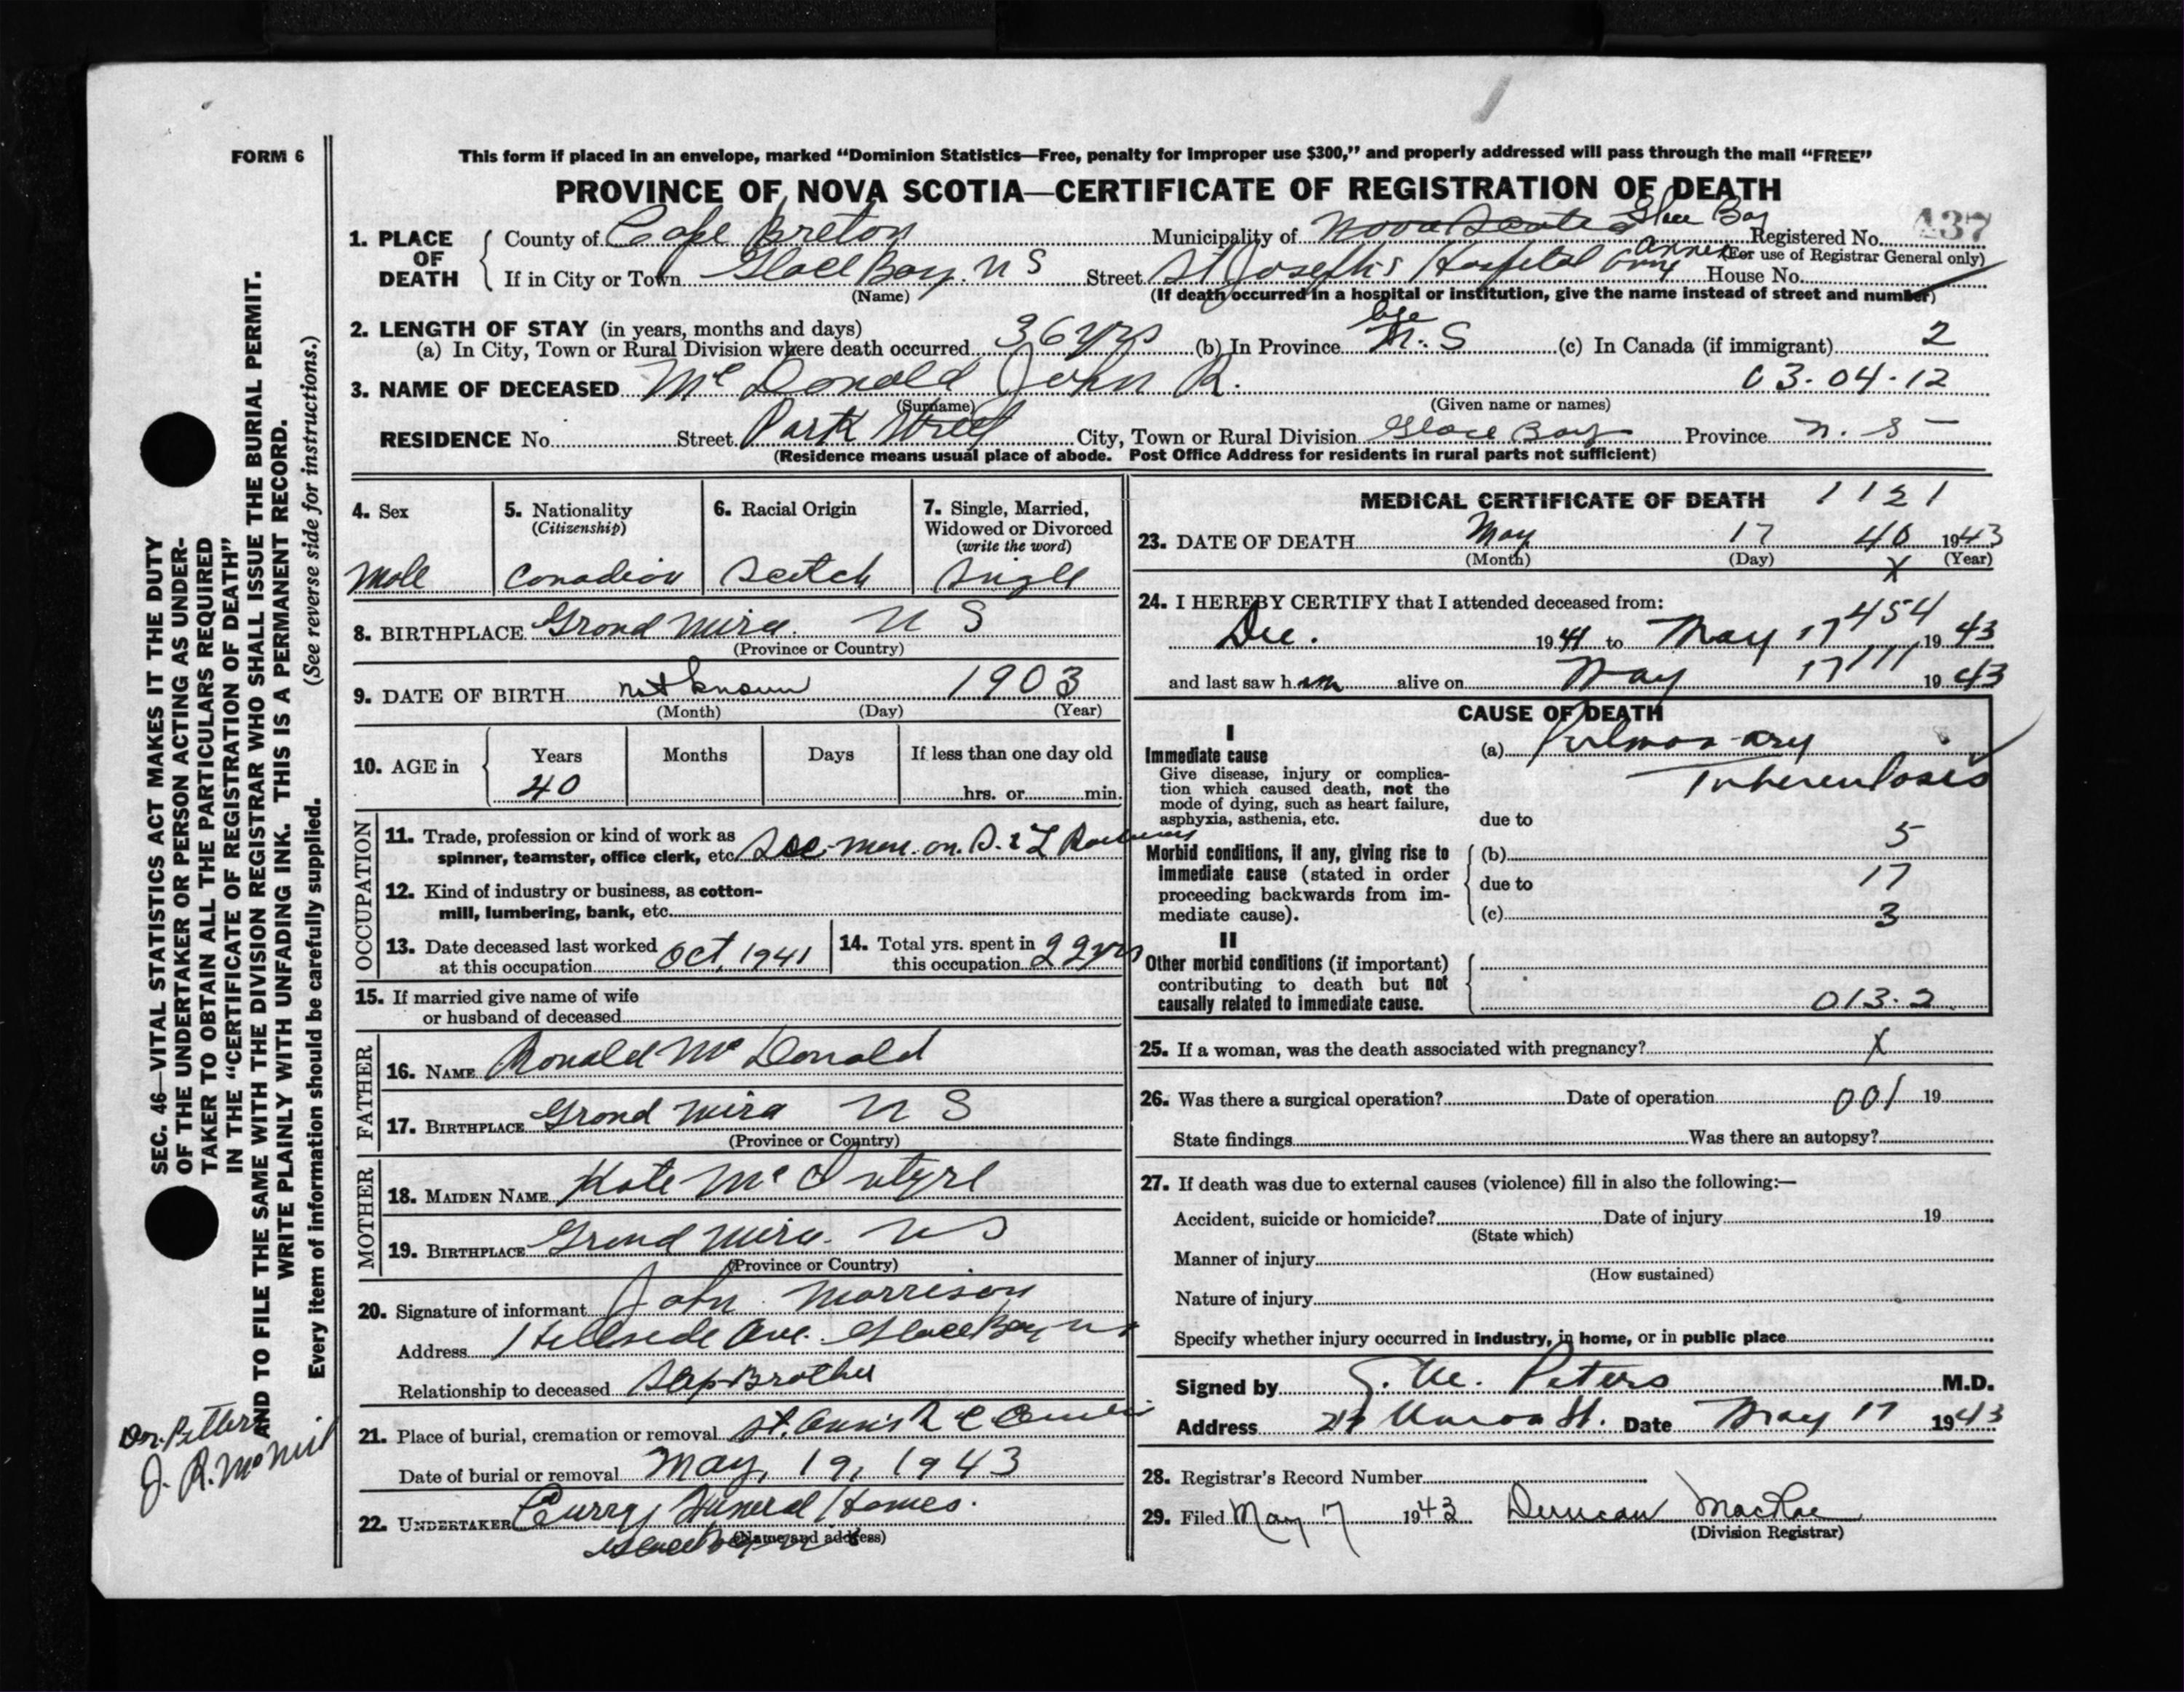 FORM 6
This form if placed in an envelope, marked “Dominion Statistics—Free, penalty for improper use $300,” and properly addressed will pass through the mail “FREE”
PROVINCE OF NOVA SCOTIA—CERTIFICATE OF REGISTRATION OF DEATH
1. PLACE OF DEATH
County of Cape Breton Municipality of Nova Scotia Glace Bay Registered No. 437
(For use of Registrar General only)
If in City or Town Glace Bay. N S Street St Joseph's Hospital Annex House No.
(Name) (If death occurred in a hospital or institution, give the name instead of street and number)
2. LENGTH OF STAY (in years, months and days)
(a) In City, Town or Rural Division where death occurred 36 yrs (b) In Province life N. S (c) In Canada (if immigrant) 2
3. NAME OF DECEASED Mc Donald John R. 03-04-12
(Surname) (Given name or names)
RESIDENCE No. Street Park Street City, Town or Rural Division Glace Bay Province N. S
(Residence means usual place of abode. Post Office Address for residents in rural parts not sufficient)
4. Sex
Male
5. Nationality
(Citizenship)
Canadian
6. Racial Origin
Scotch
7. Single, Married,
Widowed or Divorced
(write the word)
Single
8. BIRTHPLACE Grand Mira. N S
(Province or Country)
9. DATE OF BIRTH not known 1903
(Month) (Day) (Year)
10. AGE in
Years Months Days If less than one day old
40 hrs. or min.
OCCUPATION
11. Trade, profession or kind of work as
spinner, teamster, office clerk, etc. Sec. man. on. S. & L Railway
12. Kind of industry or business, as cotton-
mill, lumbering, bank, etc.
13. Date deceased last worked
at this occupation Oct, 1941
14. Total yrs. spent in
this occupation 22 yrs
15. If married give name of wife
or husband of deceased
FATHER
16. NAME Ronald Mc Donald
17. BIRTHPLACE Grand Mira N S
(Province or Country)
MOTHER
18. MAIDEN NAME Kate Mc Intyre
19. BIRTHPLACE Grand Mira. N S
(Province or Country)
20. Signature of informant John Morrison
Address Hillside Ave. Glace Bay N S
Relationship to deceased Step Brother
21. Place of burial, cremation or removal St. Ann's R C
Date of burial or removal May, 19, 1943
22. UNDERTAKER Curry Funeral Homes.
Glace Bay N S
(Name and address)
MEDICAL CERTIFICATE OF DEATH 1121
23. DATE OF DEATH May 17 40 1943
(Month) (Day) (Year)
X
24. I HEREBY CERTIFY that I attended deceased from:
454
Dec. 1941 to May 17 1943
111
and last saw h im alive on May 17 1943
CAUSE OF DEATH
I
Immediate cause
Give disease, injury or complica-
tion which caused death, not the
mode of dying, such as heart failure,
asphyxia, asthenia, etc.
(a) Pulmonary
Tuberculosis
due to
Morbid conditions, if any, giving rise to
immediate cause (stated in order
proceeding backwards from im-
mediate cause).
(b) 5
due to 17
(c) 3
II
Other morbid conditions (if important)
contributing to death but not
causally related to immediate cause.
013.2
25. If a woman, was the death associated with pregnancy? X
26. Was there a surgical operation? Date of operation 001 19
State findings Was there an autopsy?
27. If death was due to external causes (violence) fill in also the following:—
Accident, suicide or homicide? Date of injury 19
(State which)
Manner of injury
(How sustained)
Nature of injury
Specify whether injury occurred in industry, in home, or in public place
Signed by Peters M.D.
Address Union St. Date May 17 1943
28. Registrar's Record Number
29. Filed May 17 1943 Duncan MacRae
(Division Registrar)
SEC. 46—VITAL STATISTICS ACT MAKES IT THE DUTY
OF THE UNDERTAKER OR PERSON ACTING AS UNDER-
TAKER TO OBTAIN ALL THE PARTICULARS REQUIRED
IN THE “CERTIFICATE OF REGISTRATION OF DEATH”
AND TO FILE THE SAME WITH THE DIVISION REGISTRAR WHO SHALL ISSUE THE BURIAL PERMIT.
WRITE PLAINLY WITH UNFADING INK. THIS IS A PERMANENT RECORD.
(See reverse side for instructions.)
Every item of information should be carefully supplied.
J. R. McNeil